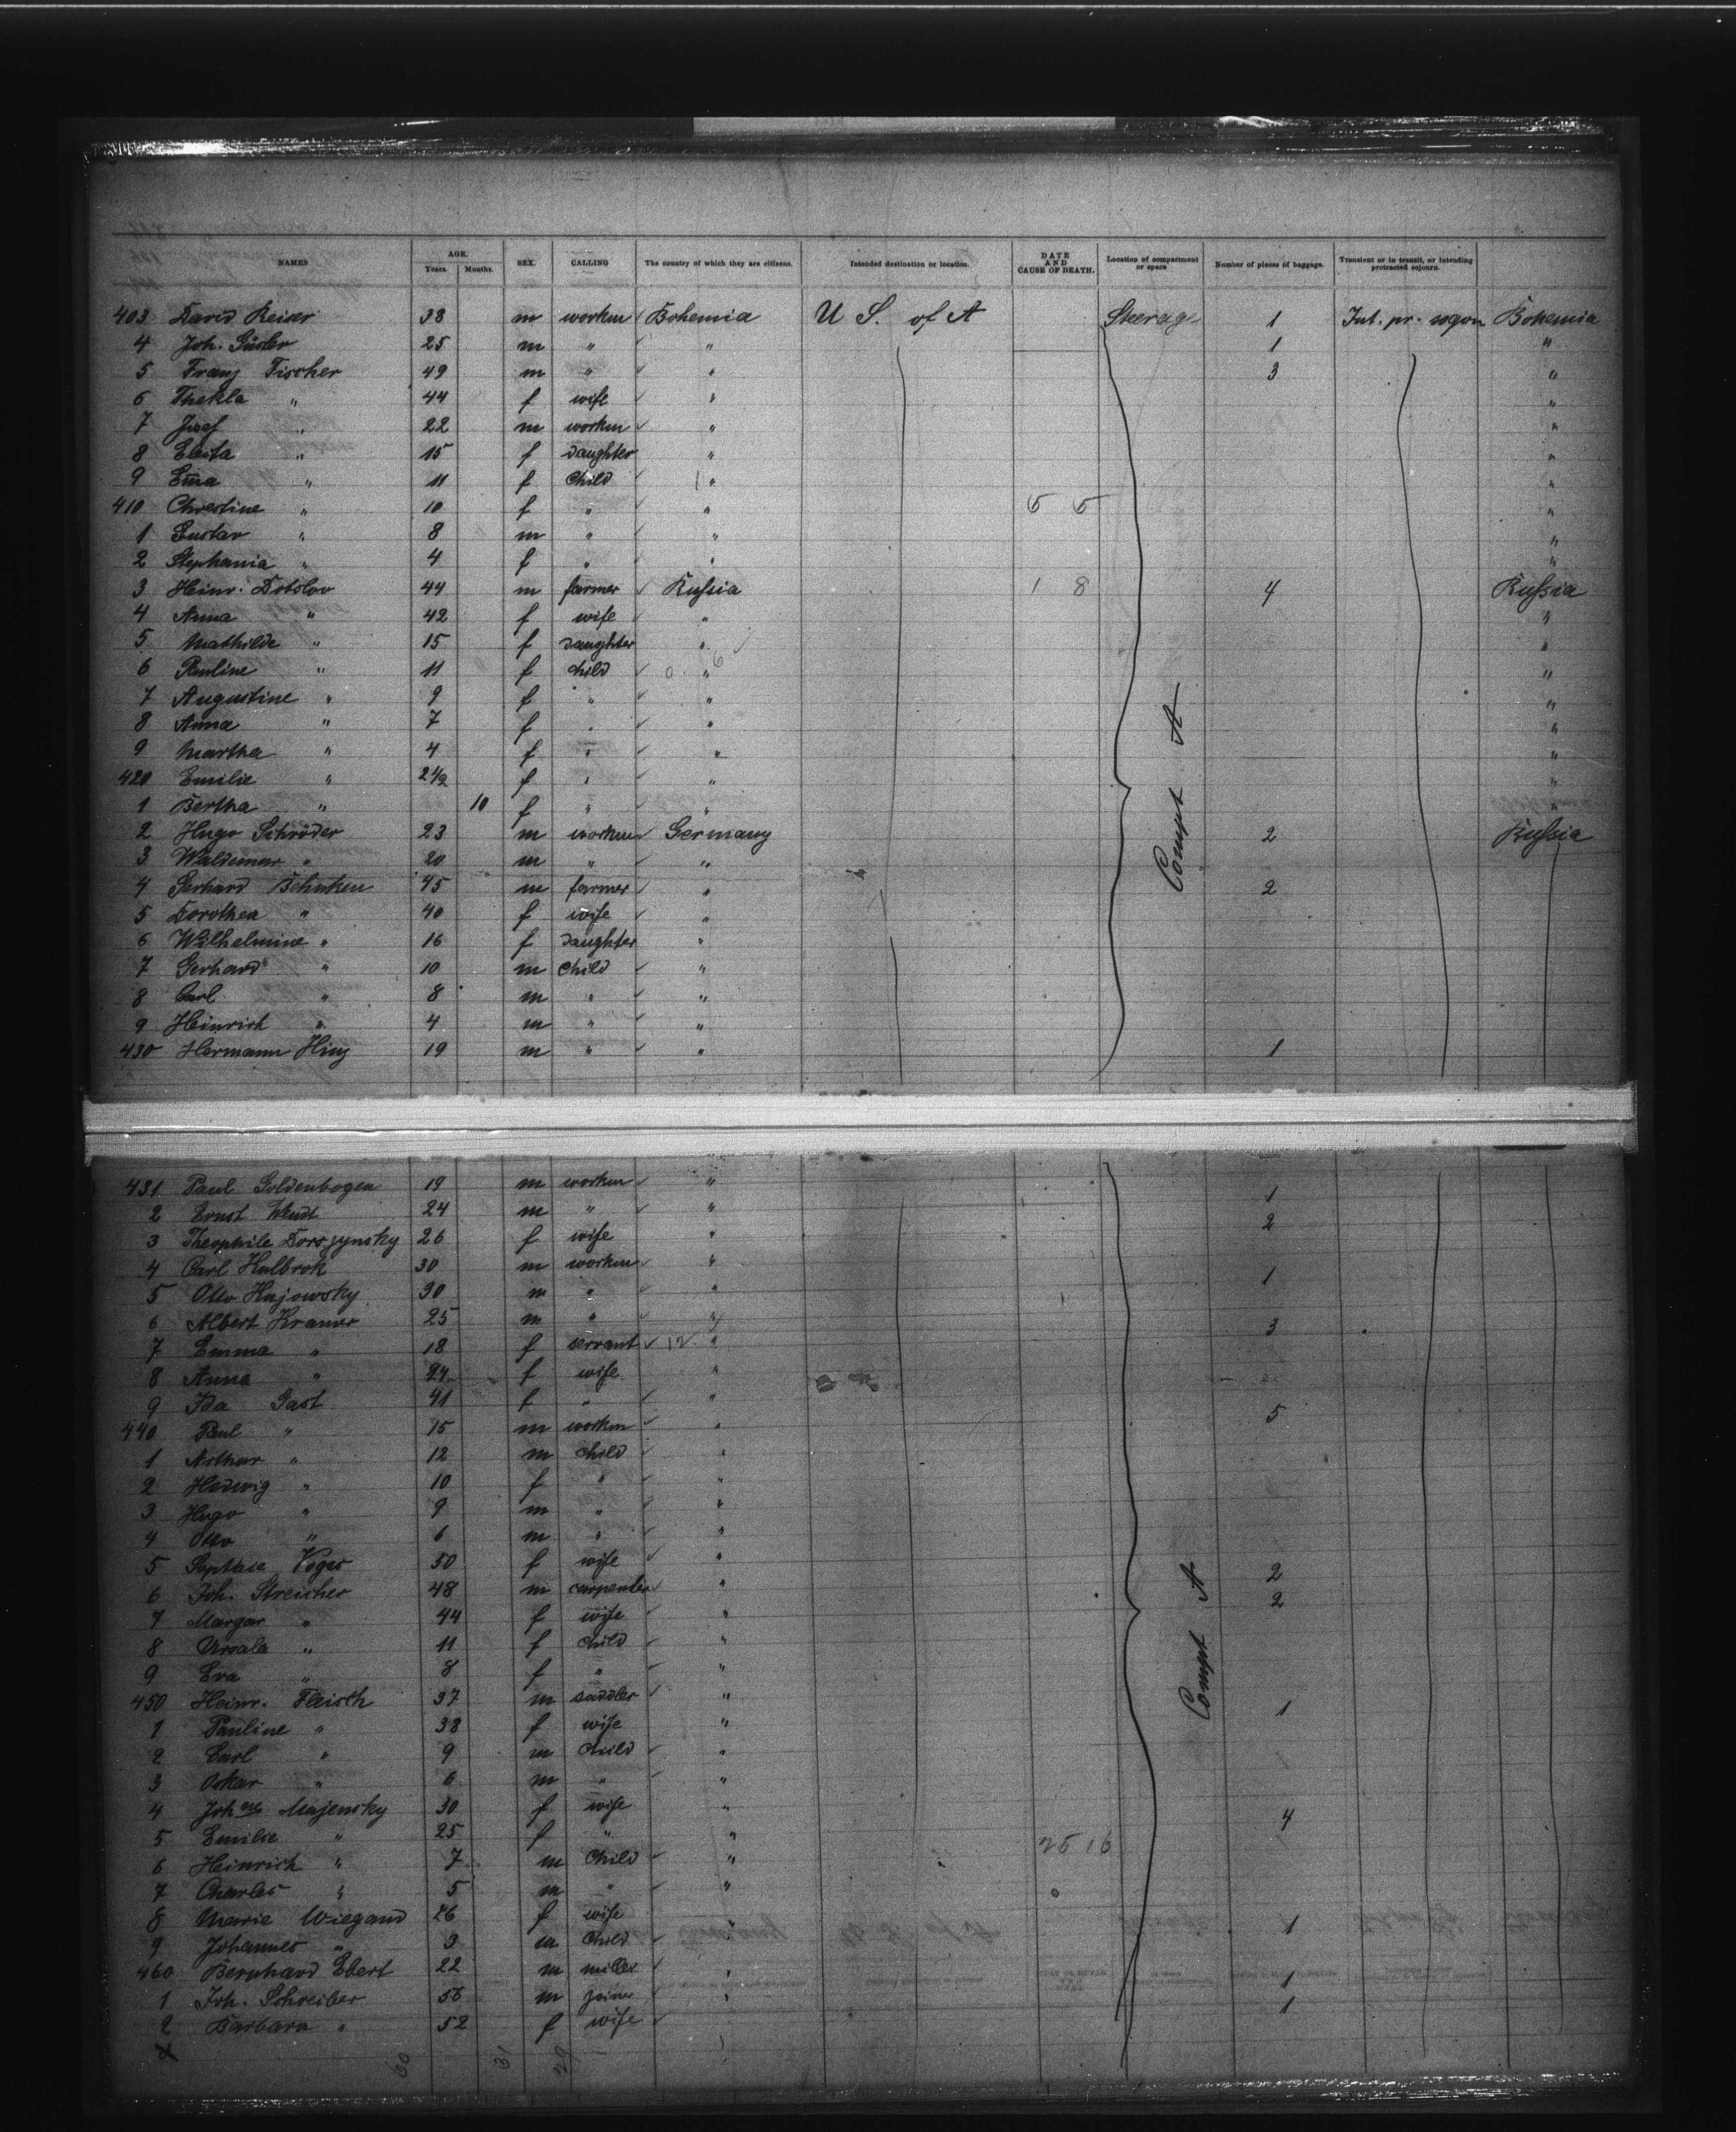 NAMES AGE. Years. Months. SEX. CALLING The country of which they are citizens. Intended destination or location. DATE AND CAUSE OF DEATH. Location of compartment or space Number of pieces of baggage. Transient or in transit, or intending protracted sojourn.
403 David Reiser 38 m workm Bohemia U S. of A Steerage 1 Int. pr. sogon Bohemia
4 Joh. 25 m " " 1 "
5 Franz Fischer 49 m " " 3 "
6 Thekla " 44 f wife " "
7 Josef " 22 m workm " "
8 " 15 f daughter " "
9 Em̄a " 11 f child " "
410 Christine " 10 f " " 5 5 "
1 Gustav " 8 m " " "
2 Stephania " 4 f " " "
3 Heinr. Dobslov 44 m farmer Rußia 1 8 4 Rußia
4 Anna " 42 f wife " "
5 Mathilde " 15 f daughter " "
6 Pauline " 11 f child 0 " 6 "
7 Augustine " 9 f " " "
8 Anna " 7 f " " "
9 Martha " 4 f " " "
420 Emilie " 2 1/2 f " " "
1 Bertha " 10 f " " "
2 Hugo Schröder 23 m workm Germany 2 Rußia
3 Waldemar " 20 m " "
4 Gerhard Behnken 45 m farmer " 2
5 Dorothea " 40 f wife "
6 Wilhelmine " 16 f daughter "
7 Gerhard " 10 m child "
8 Carl " 8 m " "
9 Heinrich " 4 m " "
430 Hermann Hinz 19 m " " 1
Compt A
431 Paul Goldenbogen 19 m workm " 1
2 Ernst Wendt 24 m " " 2
3 Theophile Dorszynsky 26 f wife "
4 Carl Hulbrok 30 m workm " 1
5 Otto Hujowsky 30 m " "
6 Albert Kramer 25 m " " 3
7 Emma " 18 f servant 12 "
8 Anna " 24 f wife "
9 Ida Gast 41 f " " 5
440 Paul " 15 m workm "
1 Arthur " 12 m child "
2 Hedwig " 10 f " "
3 Hugo " 9 m " "
4 Otto " 6 m " "
5 Voges 50 f wife " 2
6 Joh. Streicher 48 m carpenter " 2
7 Margar " 44 f wife "
8 Ursala " 11 f child "
9 Eva " 8 f " "
450 Heinr. Fleisch 37 m saddler " 1
1 Pauline " 38 f wife "
2 Carl " 9 m child "
3 Oskar " 6 m " "
4 Johne Majensky 30 f wife " 4
5 Emilie " 25 f " " 25 16
6 Heinrich " 7 m child "
7 Charles " 5 m " "
8 Marie Wiegand 26 f wife 1
9 Johannes " 3 m child "
460 Bernhard Ebert 22 m miller " 1
1 Joh. Schreiber 56 m joiner " 1
2 Barbara " 52 f wife
Compt A
60 31 29